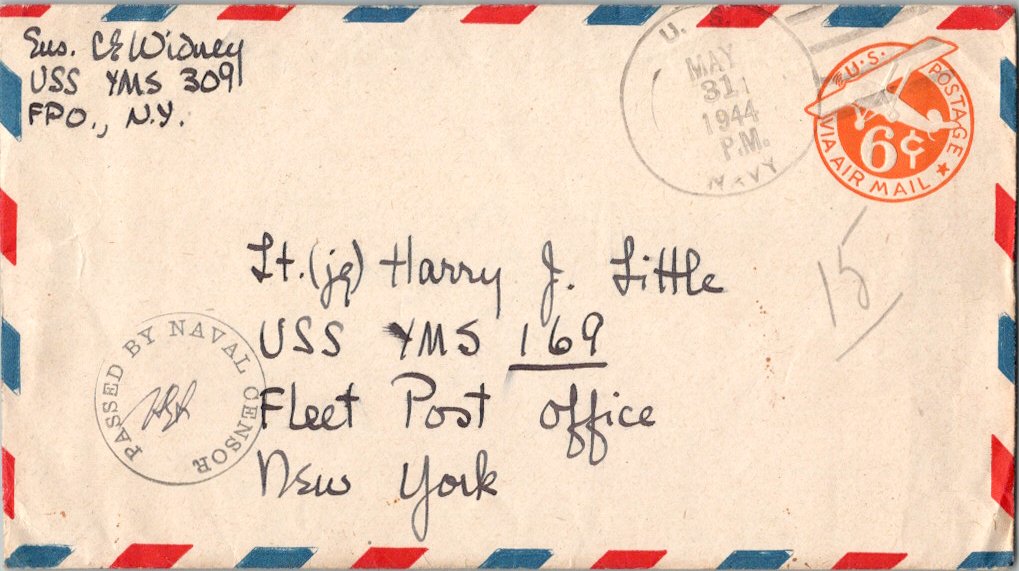 Ens. CE Widney
USS YMS 309
FPO., N.Y.
U. S.
MAY
31
1944
P.M.
NAVY
U.S. POSTAGE
6¢
VIA AIR MAIL
15
Lt. (jg) Harry J. Little
USS YMS 169
Fleet Post office
New York
PASSED BY NAVAL CENSOR